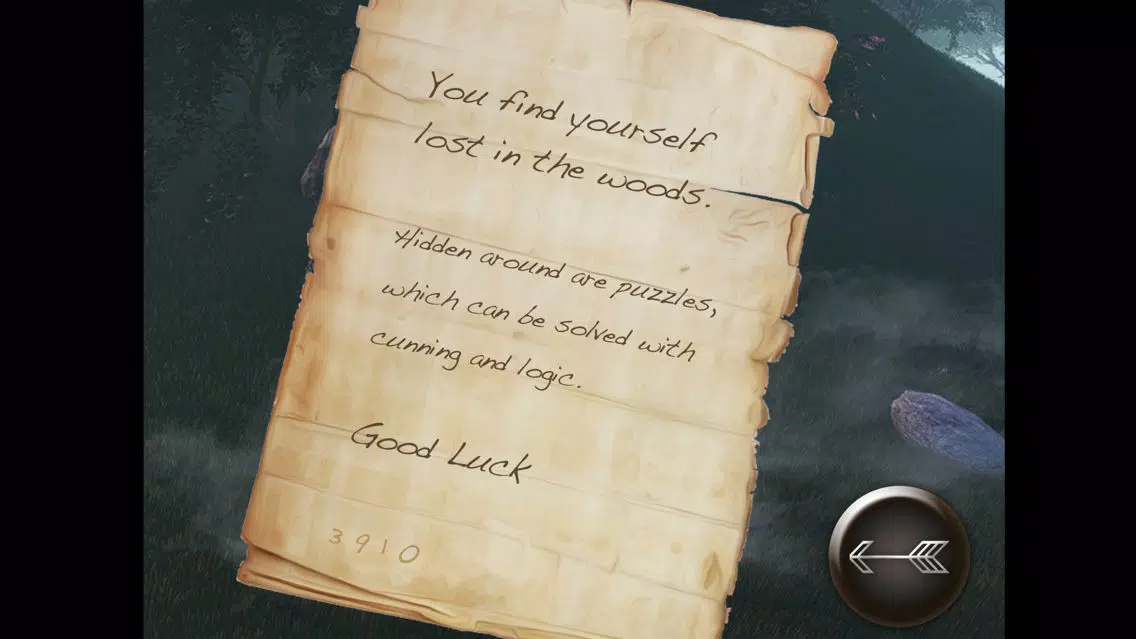 You find yourself
lost in the woods.
Hidden around are puzzles,
which can be solved with
cunning and logic.
Good Luck
3910